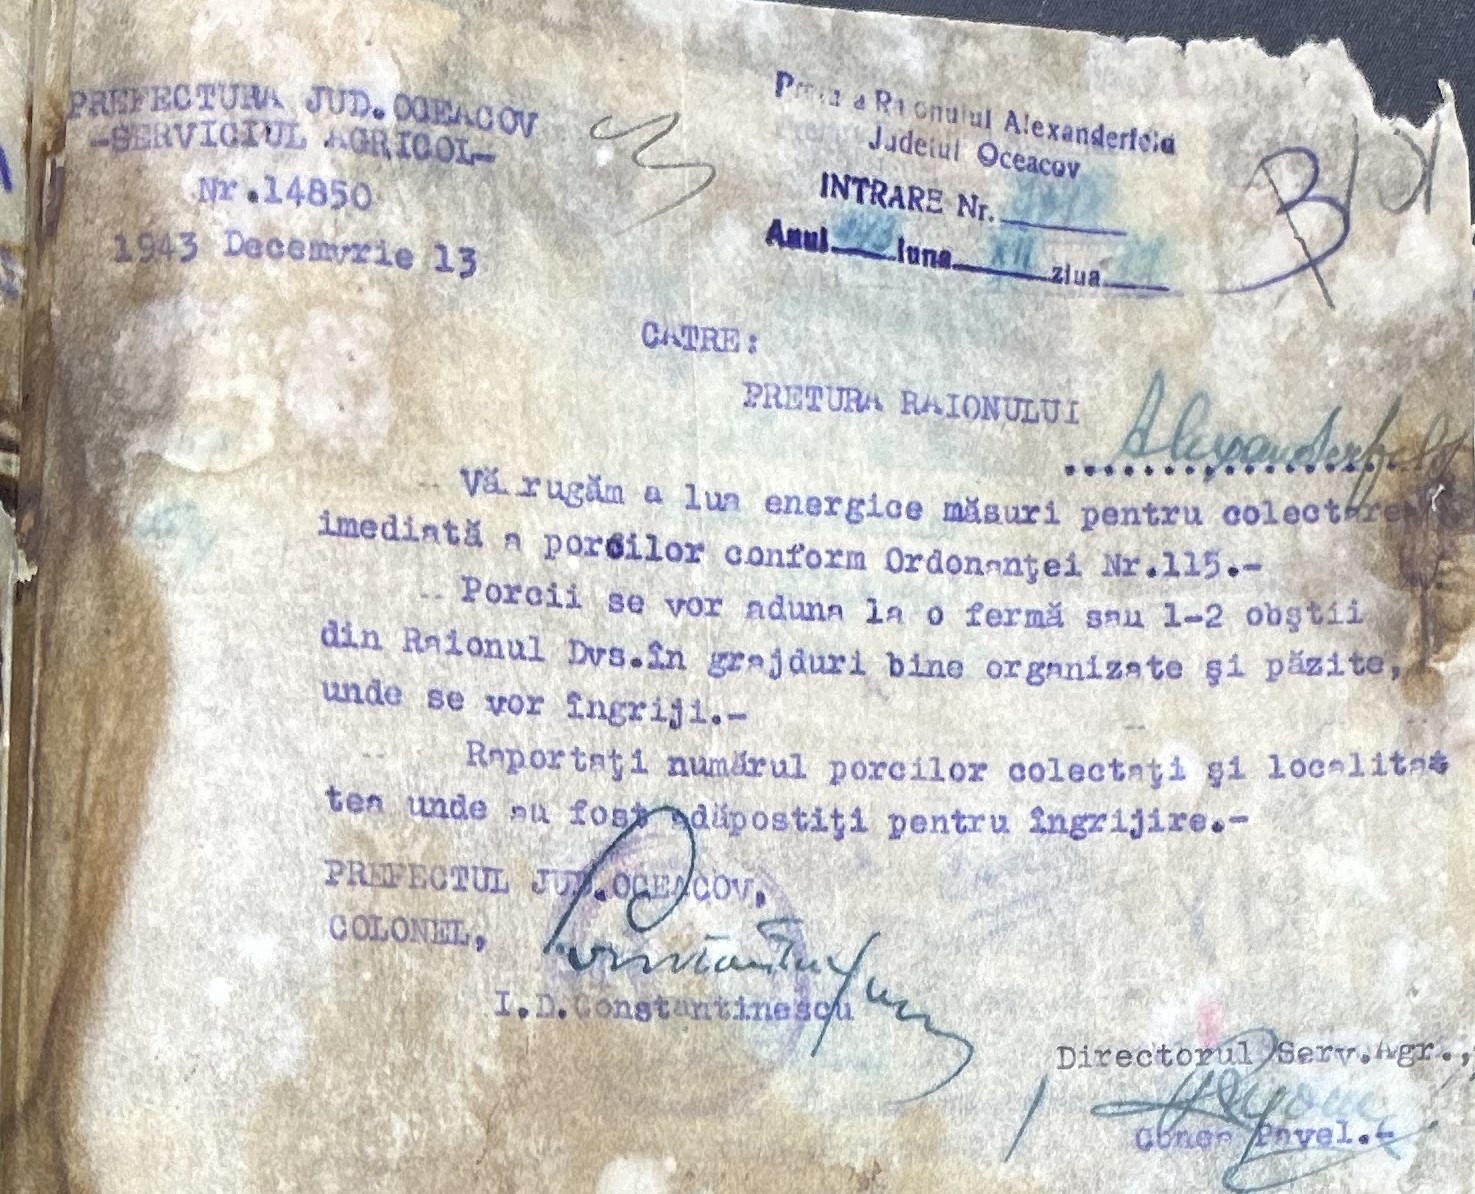 PREFECTURA JUD.OCEACOV
-SERVICIUL AGRICOL-
Nr.14850
1943 Decemvrie 13
a Raionului Alexanderfeld
Judetul Oceacov
INTRARE Nr.
Anul luna XII ziua
B
CATRE:
PRETURA RAIONULUI Alexanderfeld
Vă rugăm a lua energice măsuri pentru colectarea
imediată a porcilor conform Ordonanţei Nr.115.-
Porcii se vor aduna la o fermă sau 1-2 obştii
din Raionul Dvs.în grajduri bine organizate şi păzite,
unde se vor îngriji.-
Raportaţi numărul porcilor colectaţi şi localitat
tea unde au fost adăpostiţi pentru îngrijire.-
PREFECTUL JUD.OCEACOV,
COLONEL,
Constantinescu
I.D.Constantinescu
Directorul Serv.Agr.,
Conea Pavel.-